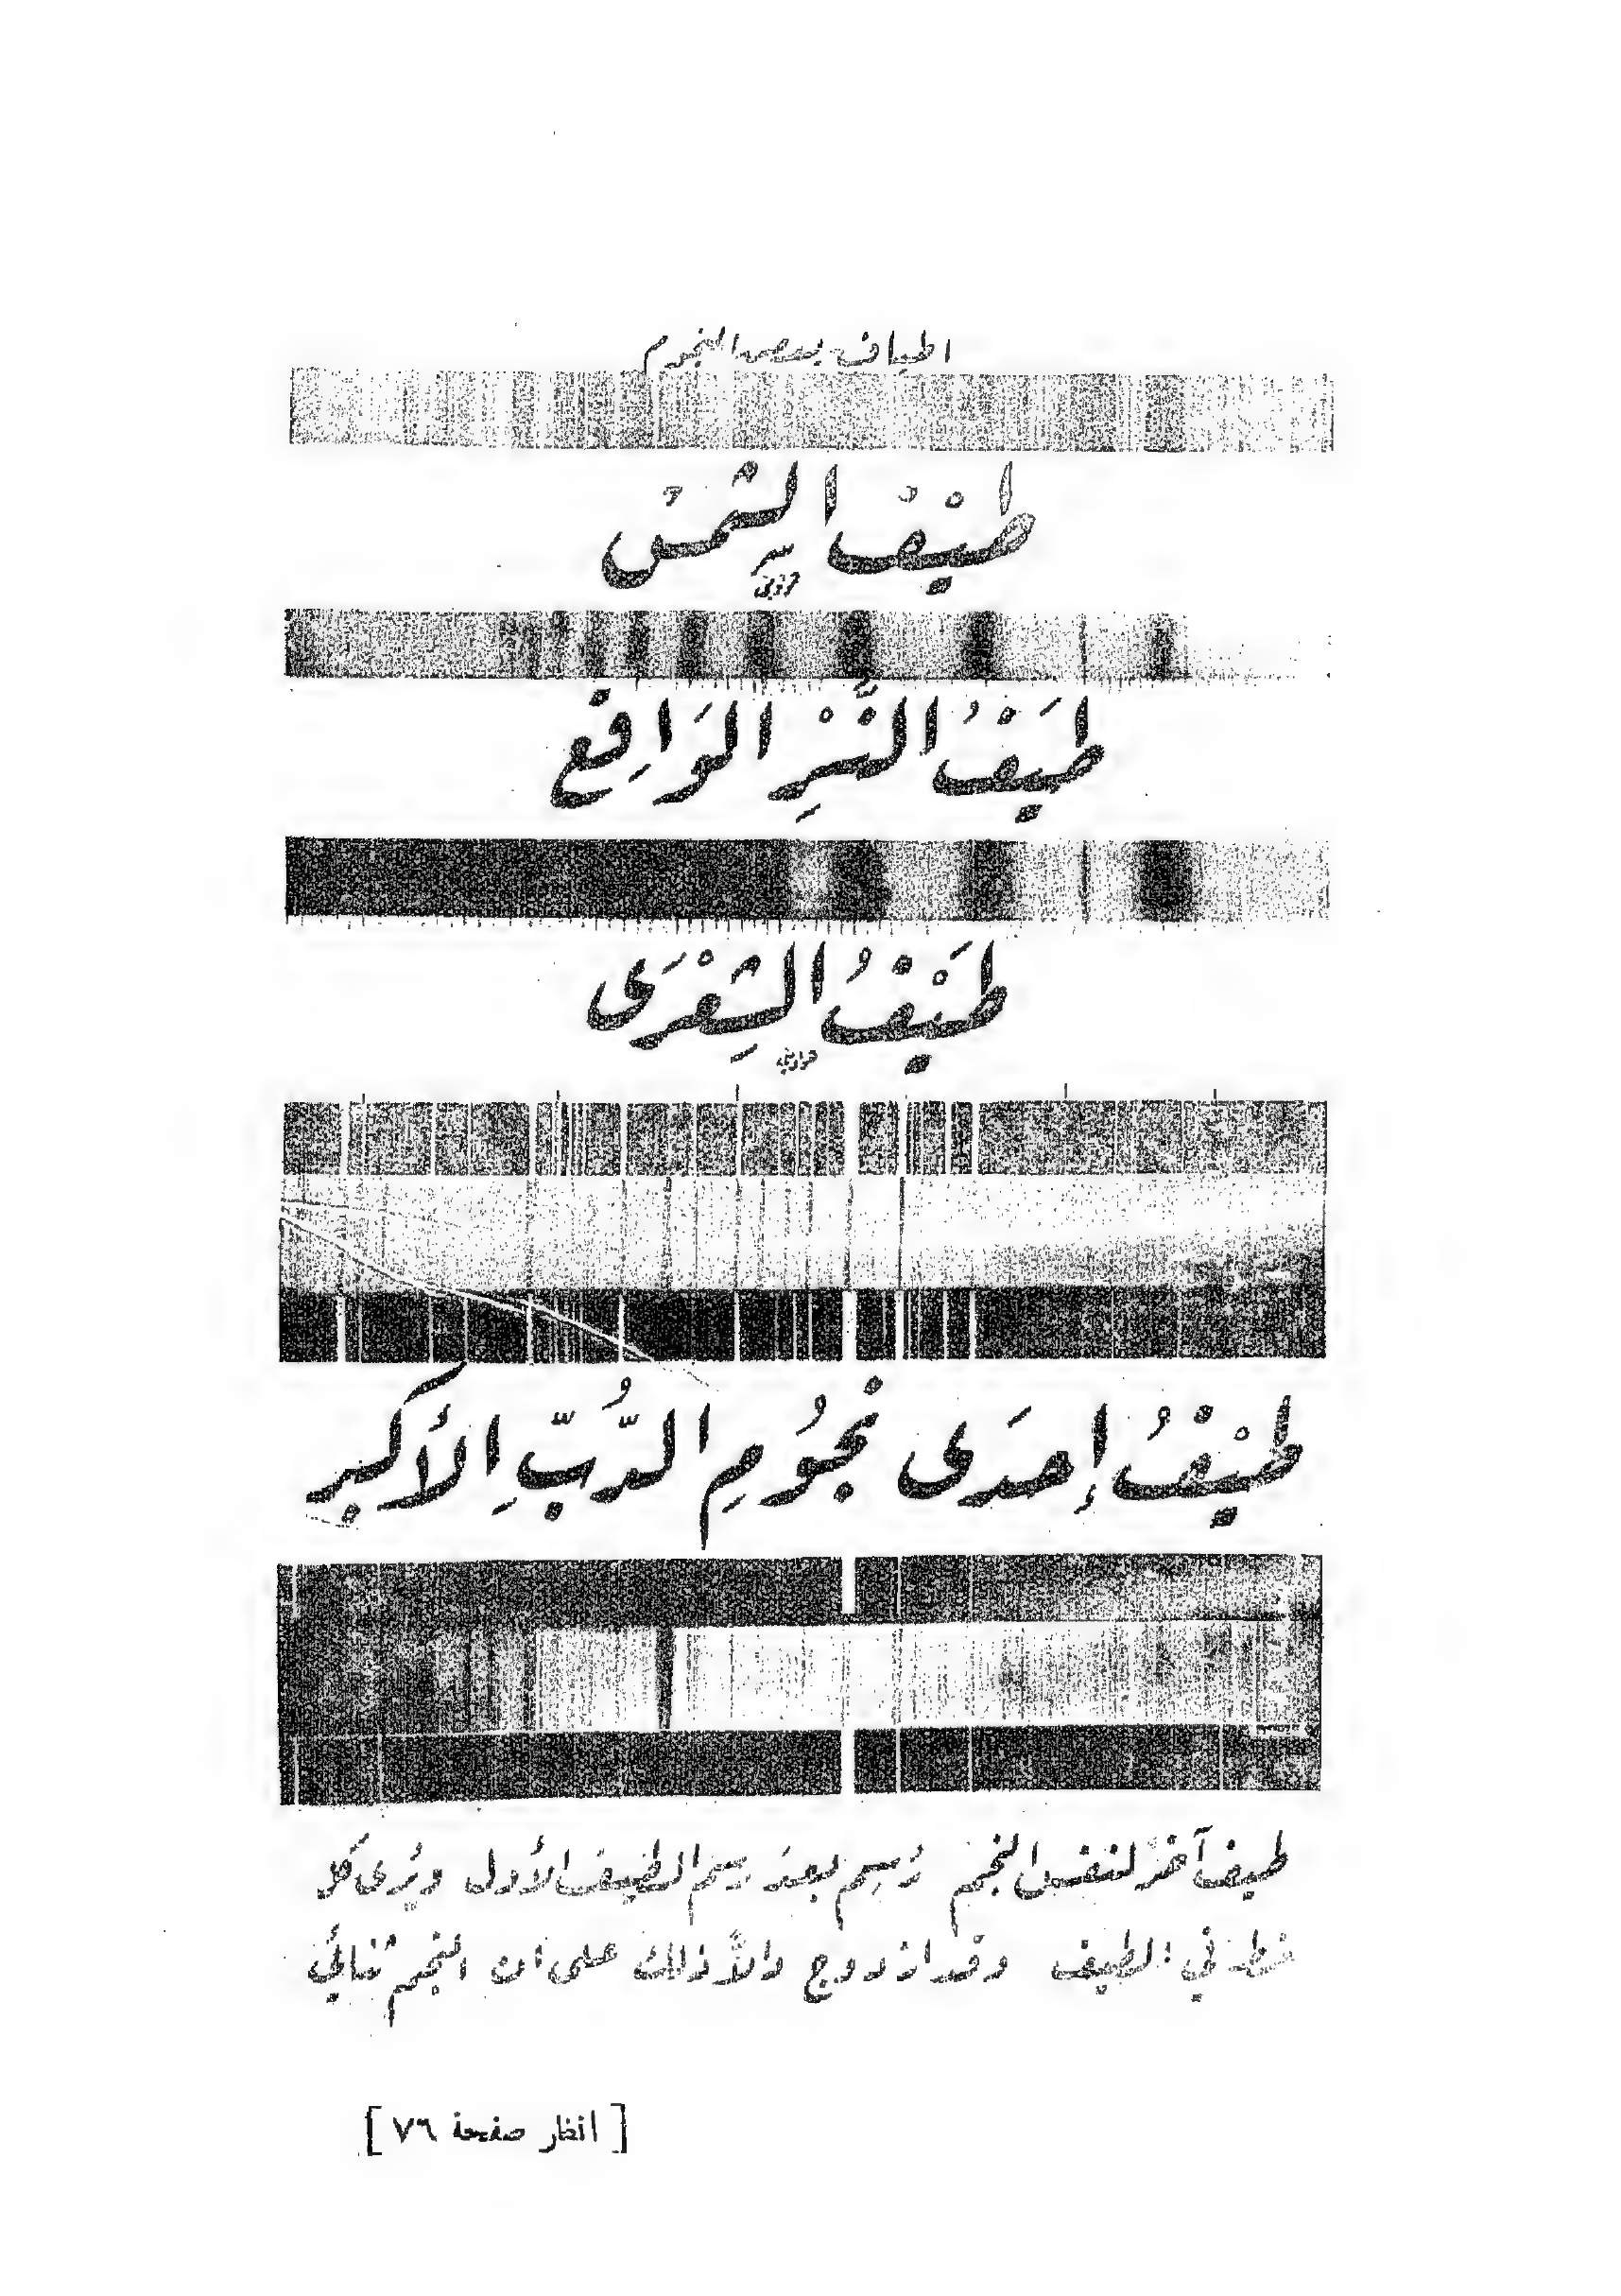 اطياف بعض النجوم
طيْفُ الشَّمسْ
طَيْفُ النَّسْرِ الوَاقِع
طَيْفُ الشِعْرَى
طيْفُ إحدَى نجُومِ الدُّبّ الأكبر
طيف آخر لنفس النجم رُسِم بعدَ رسم الطيف الأول ويُرى كل
خط في الطيف وقد ازدوج دالاًّ ذلك على ان النجم ثنائي
[ انظر صفحة ٧٦ ]